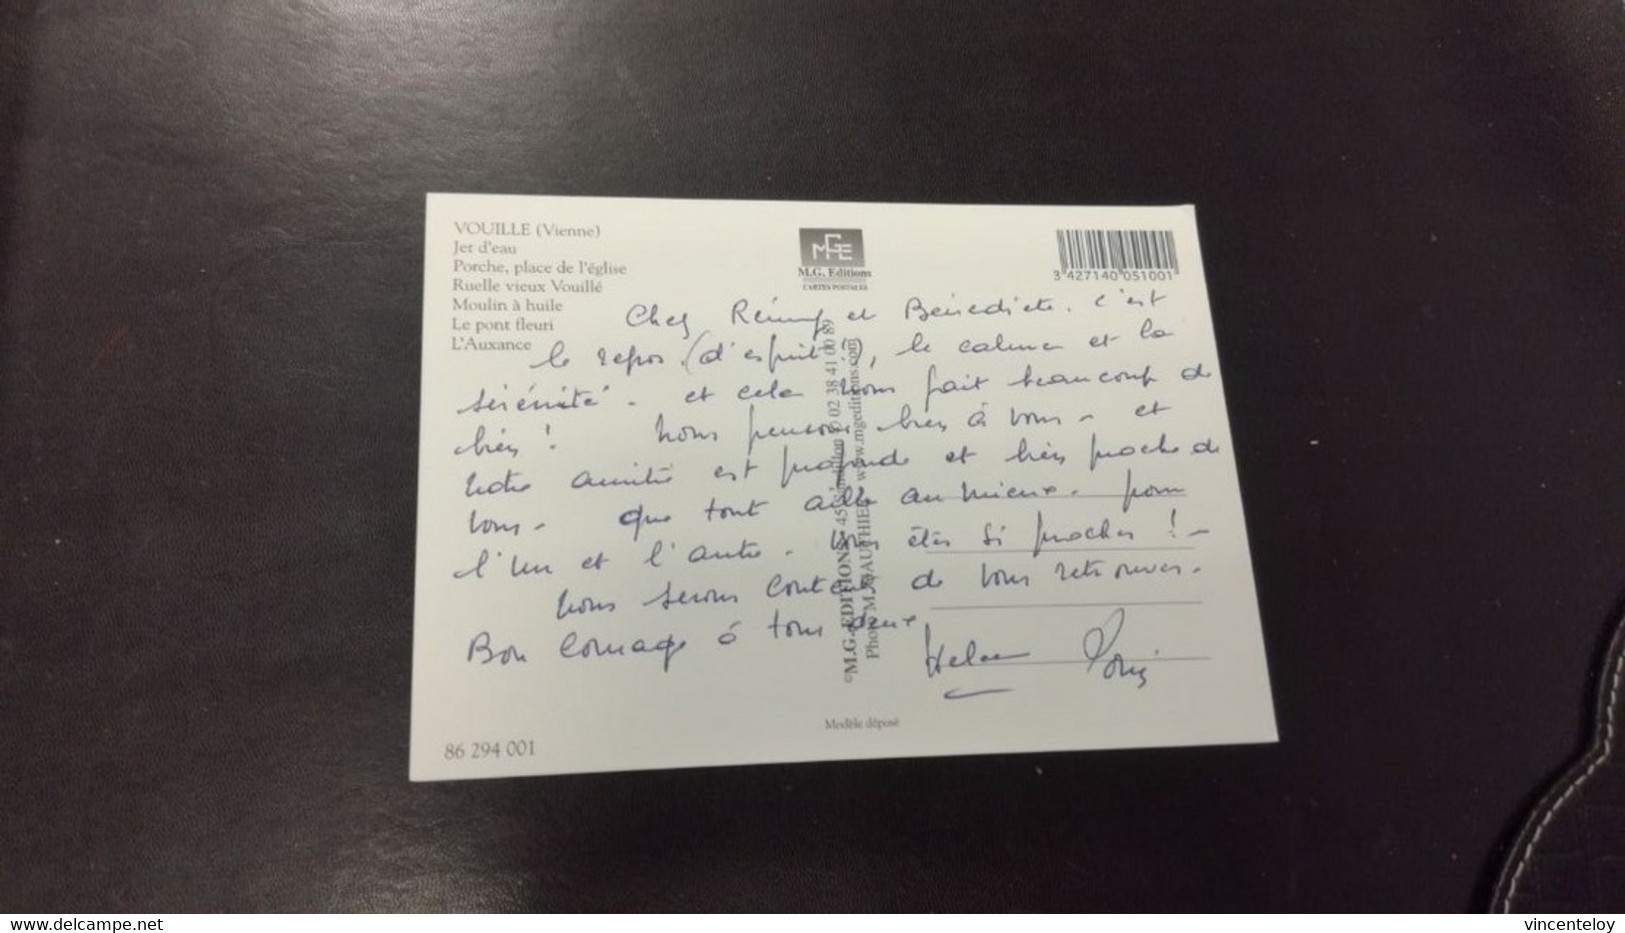 VOUILLE (Vienne)
Jet d'eau
Porche, place de l'église
Ruelle vieux Vouillé
Moulin à huile
Le pont fleuri
L'Auxance
MGE
M.G. Editions
CARTES POSTALES
3 427140 051001
Chez Rémy et Bénédicte. c'est
le repos (d'esprit !), le calme et la
sérénité. et cela nous fait beaucoup de
bien ! Nous pensons bien à vous - et
notre amitié est profonde et bien proche de
vous - que tout aille au mieux. pour
l'un et l'autre. Vous êtes si proches ! -
Nous serons contents de vous retrouver.
Bon courage à tous deux
Louis
©M.G. EDITIONS 45 02 38 41 00 89
Photo M. GAUTHIER www.mgeditions.com
Modèle déposé
86 294 001
delcampe.net
vincenteloy